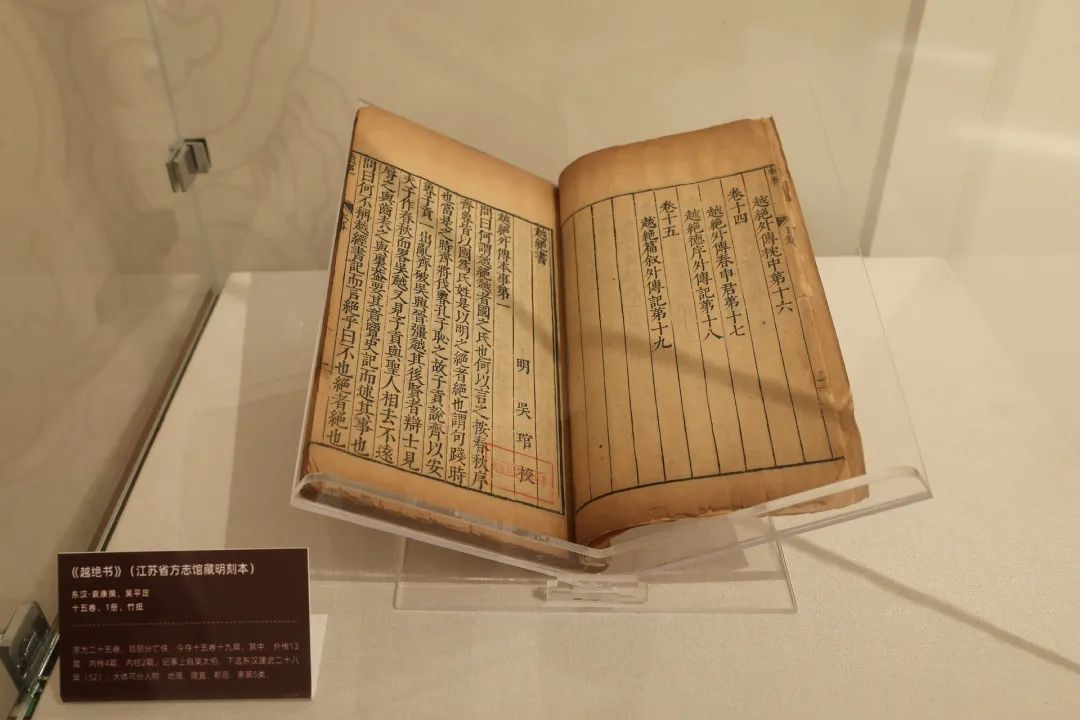 越絶外傳枕中第十六
卷十四
越絶外傳春申君第十七
越絶德序外傳記第十八
卷十五
越絶篇叙外傳記第十九
越絶書
明 吳琯 校
越絶外傳本事第一
問曰何謂越絶越者國之氏也何以言之按春秋序
齊魯皆以國爲氏姓是以明之絶者絶也謂句踐時
也當是之時齊將伐魯孔子恥之故子貢說齊以安
魯子貢一出亂齊破吳興晉彊越其後賢者辯士見
夫子作春秋而畧吳越又見子貢與聖人相去不遠
脣之與齒表之與裏蓋要其意覽史記而述其事也
問曰何不稱越經書記而言絶乎曰不也絶者絶也
《越绝书》（江苏省方志馆藏明刻本）
东汉·袁康撰，吴平定
十五卷，1册，竹纸
原为二十五卷，后部分亡佚，今存十五卷十九篇，其中，外传13
篇，内传4篇，内经2篇。记事上自吴太伯，下迄东汉建武二十八
年（52），大体可分人物、地理、建置、都邑、家墓5类。